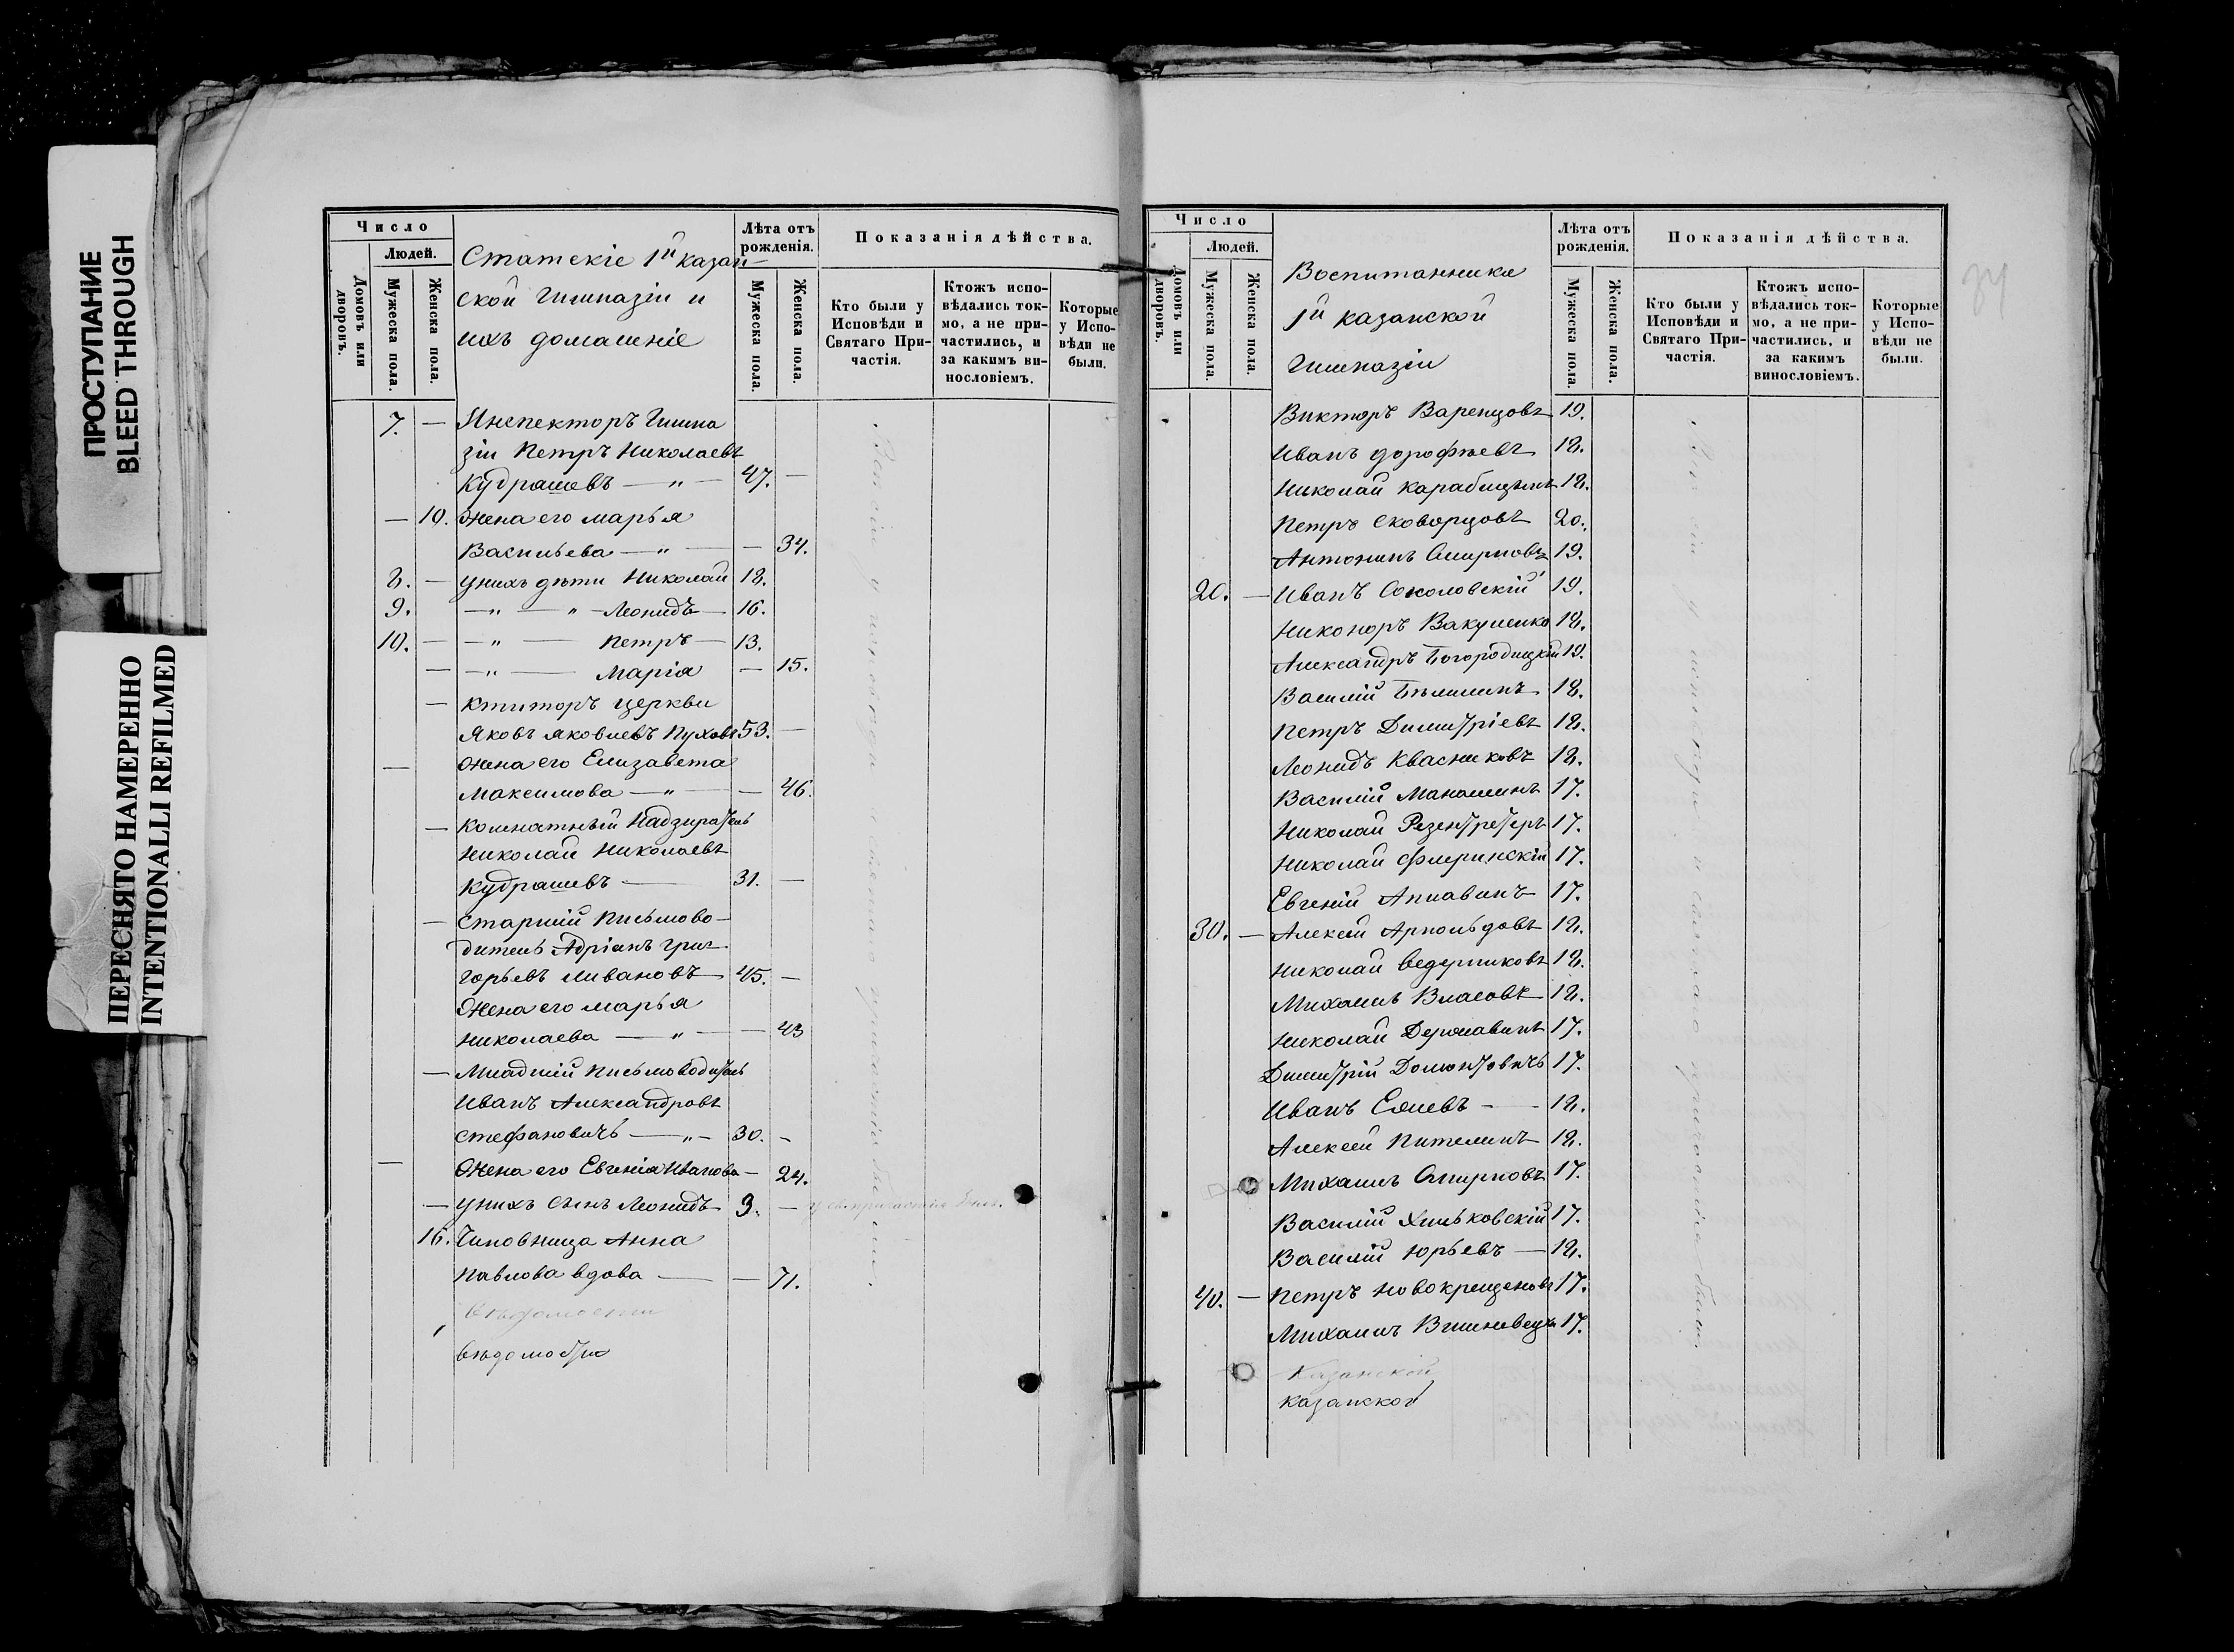 ПРОСТУПАНИЕ
BLEED THROUGH
ПЕРЕСНЯТО НАМЕРЕННО
INTENTIONALLI REFILMED
Число
Людей.
Домовъ или дворовъ.
Мужеска пола.
Женска пола.
Статскіе 1й казан-
ской Гимназіи и
ихъ домашніе
Лѣта отъ рожденія.
Мужеска пола.
Женска пола.
Показанія дѣйства.
Кто были у Исповѣди и Святаго При-частія.
Ктожъ испо-вѣдались ток-мо, а не при-частились, и за какимъ ви-нословіемъ.
Которые у Испо-вѣди не были.
7. — Инспекторъ Гимна
зіи Петръ Николаевъ
Кудрашевъ — „ — 47. —
— 10. Жена его Марья
Васильева — „ — — 34.
8. — у нихъ дѣти Николай 18.
9. — „ — „ — Леонидъ — 16.
10. — — „ — Петръ — 13.
— — „ — Марія — 15.
— Ктиторъ церкви
Яковъ Яковлевъ Пуховъ 53. —
— Жена его Елизавета
Максимова — „ — — 46.
— Комнатный Надзиратель
Николай Николаевъ
Кудрашевъ — 31. —
— Старшій Письмово-
дитель Адріанъ Григ-
горьевъ Ливановъ — 45. —
Жена его Марья
Николаева — „ — — 43
— Младшій Письмоводитель
Иванъ Александровъ
Стефановичъ — „ — 30. —
— Жена его Евгенія Иванова — 24.
— у нихъ сынъ Леонидъ 3. —
16. Чиновница Анна
Павлова вдова — — 71.
вѣдомости
вѣдомости
Число
Людей.
Домовъ или дворовъ.
Мужеска пола.
Женска пола.
Воспитанники
1й казанской
Гимназіи
Лѣта отъ рожденія.
Мужеска пола.
Женска пола.
Показанія дѣйства.
Кто были у Исповѣди и Святаго При-частія.
Ктожъ испо-вѣдались ток-мо, а не при-частились, и за какимъ винословіемъ.
Которые у Испо-вѣди не были.
Викторъ Варенцовъ 19.
Иванъ Дорофѣевъ 18.
Николай 18.
Петръ Скворцовъ 20.
Антонинъ Смирновъ 19.
20. — Иванъ Соколовскій 19.
Никоноръ Вакуленко 18.
Александръ Богородицкій 19.
Василій 18.
Петръ Димитріевъ 18.
Леонидъ Квасниковъ 18.
Василій 17.
Николай 17.
Николай Флеринскій 17.
Евгеній 17.
30. — Алексѣй Арнольдовъ 18.
Николай Ведерниковъ 18.
Михаилъ Власовъ 18.
Николай Державинъ 17.
Димитрій Домонтовичъ 17.
Иванъ — 18.
Алексѣй 18.
Михаилъ Смирновъ 17.
Василій Хмѣльковскій 17.
Василій Юрьевъ — 18.
40. — Петръ Новокрещеновъ 17.
Михаилъ Вишневецъ 17.
Казанской
казанской